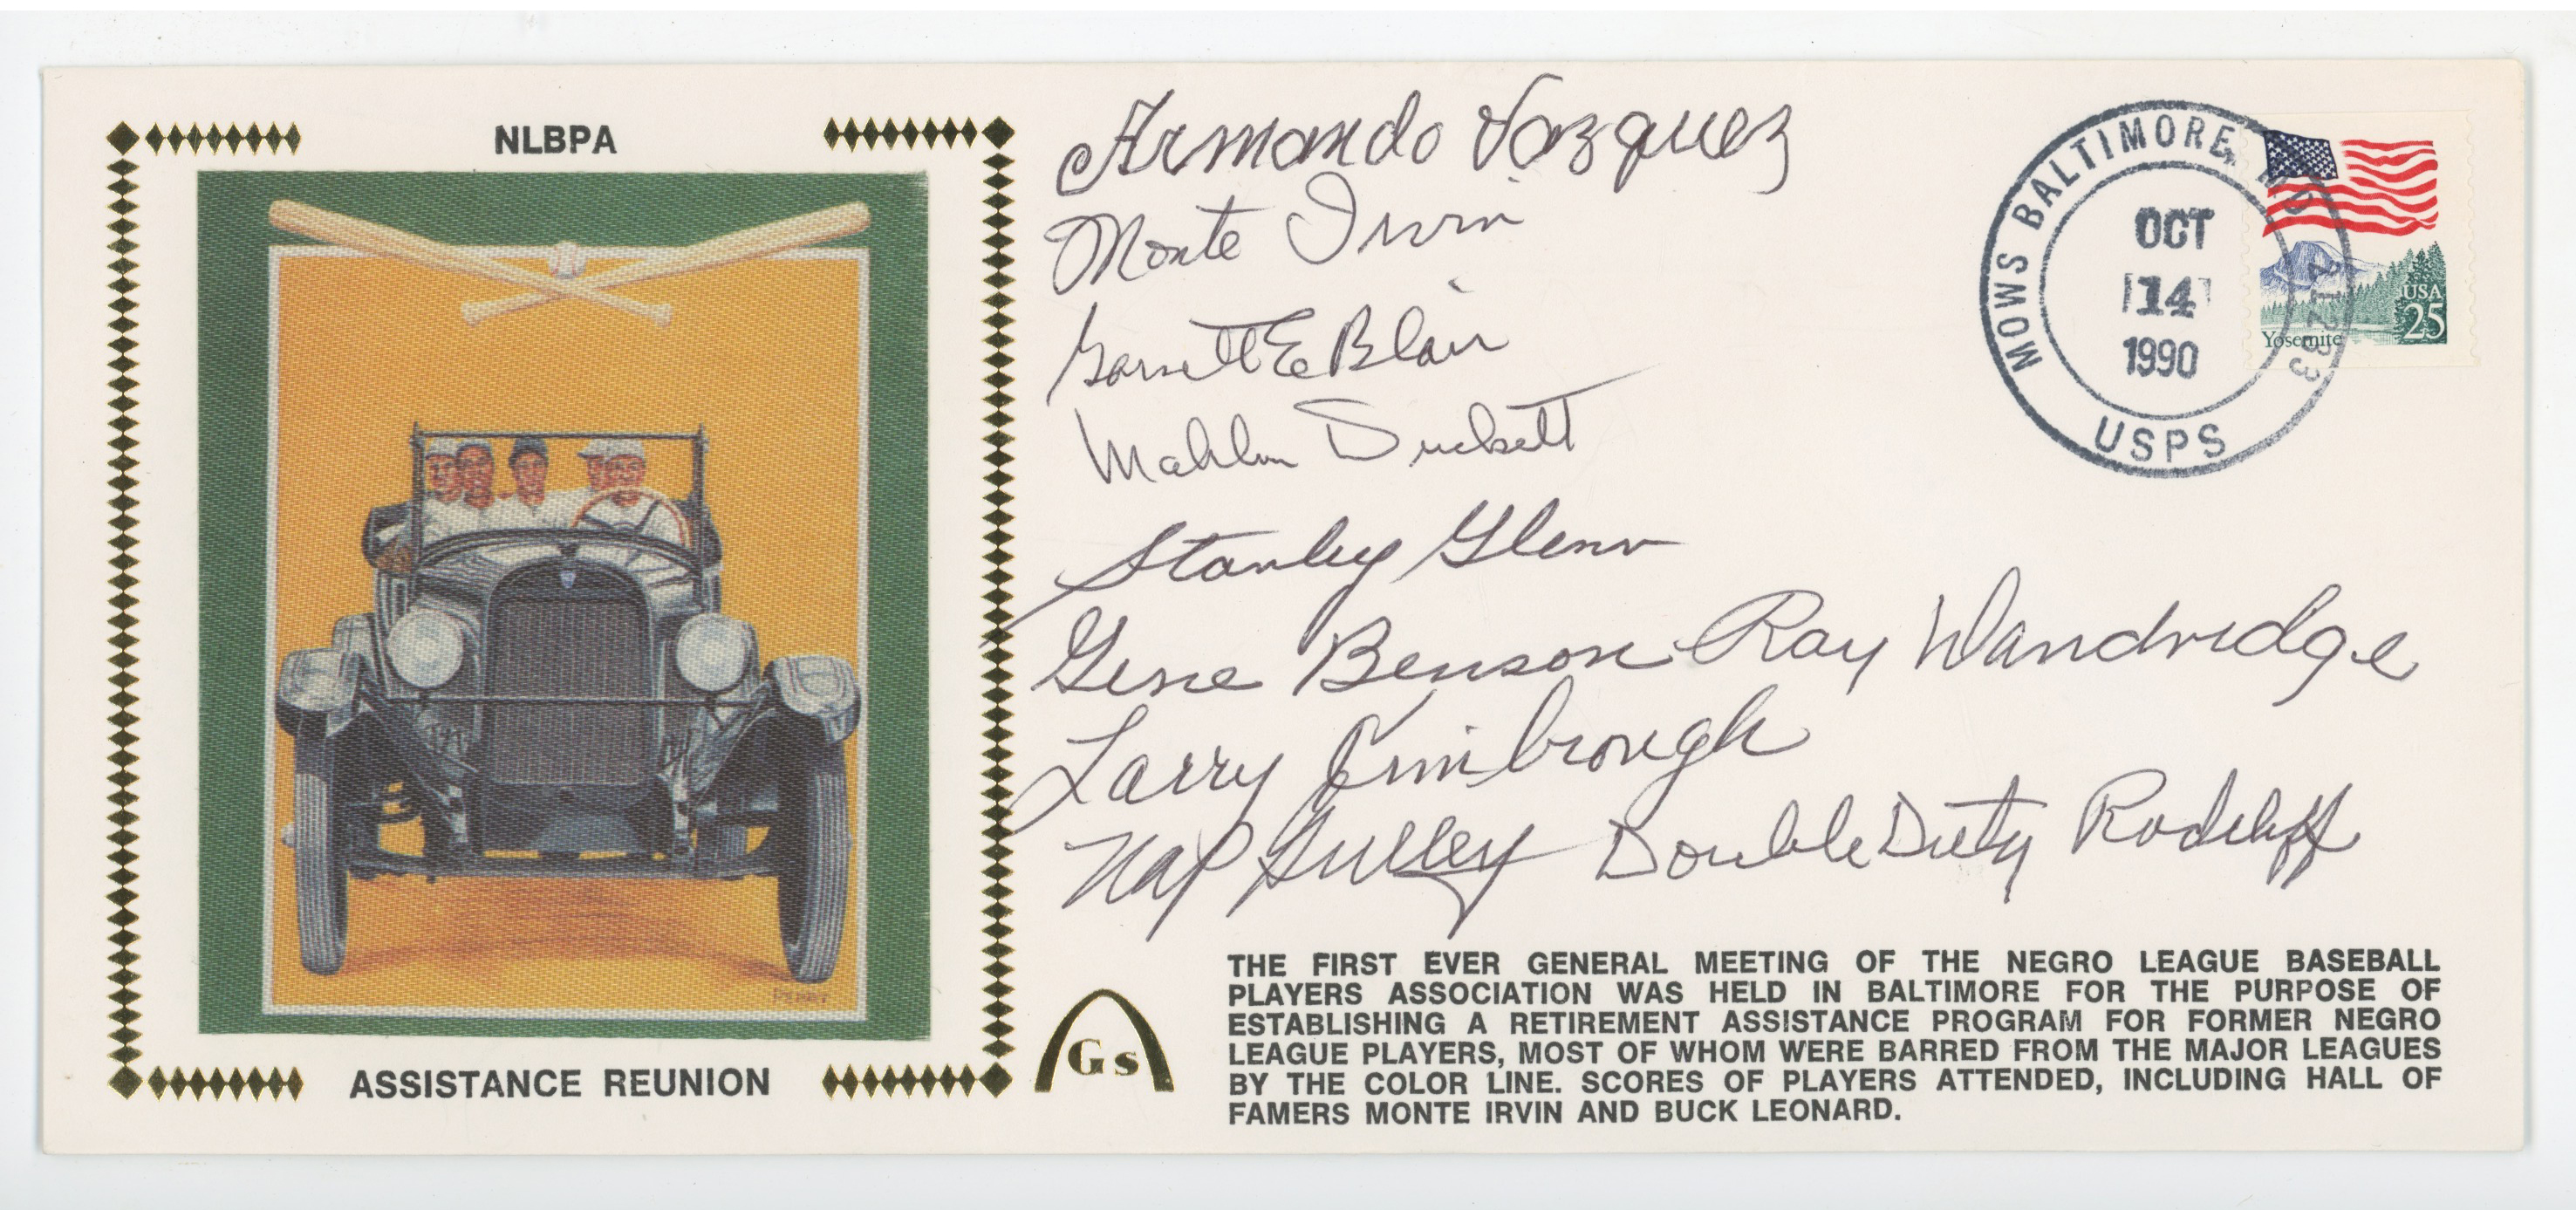 NLBPA
Armando Vazquez
Monte Irvin
Garnett E Blair
Mahlon Duckett
Stanley Glenn
Gene Benson Ray Dandridge
Larry Kimbrough
Nap Gulley Double Duty Radcliff
MOWS BALTIMORE, MD 21233
OCT
14
1990
USPS
USA
25
Yosemite
PERRY
ASSISTANCE REUNION
Gs
THE FIRST EVER GENERAL MEETING OF THE NEGRO LEAGUE BASEBALL
PLAYERS ASSOCIATION WAS HELD IN BALTIMORE FOR THE PURPOSE OF
ESTABLISHING A RETIREMENT ASSISTANCE PROGRAM FOR FORMER NEGRO
LEAGUE PLAYERS, MOST OF WHOM WERE BARRED FROM THE MAJOR LEAGUES
BY THE COLOR LINE. SCORES OF PLAYERS ATTENDED, INCLUDING HALL OF
FAMERS MONTE IRVIN AND BUCK LEONARD.